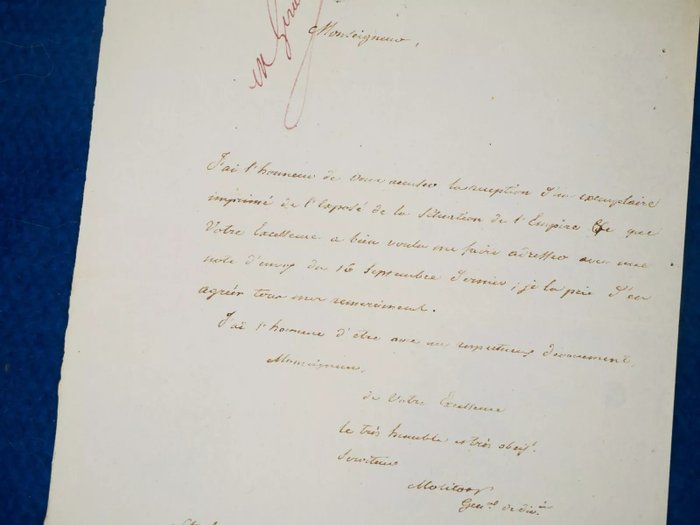 M. Gérar
Monseigneur,
J'ai l'honneur de vous accuser la reception d'un exemplaire
imprimé de l'Exposé de la Situation de l'Empire que
Votre Excellence a bien voulu me faire adresser avec une
note d'envoy du 16 Septembre dernier, je la prie d'en
agréer tous mes remerciment.
J'ai l'honneur d'être avec un respectueux devouement,
Monseigneur,
de Votre Excellence
le très humble et très obeist.
Serviteur
Molitor
Genal. de divon.